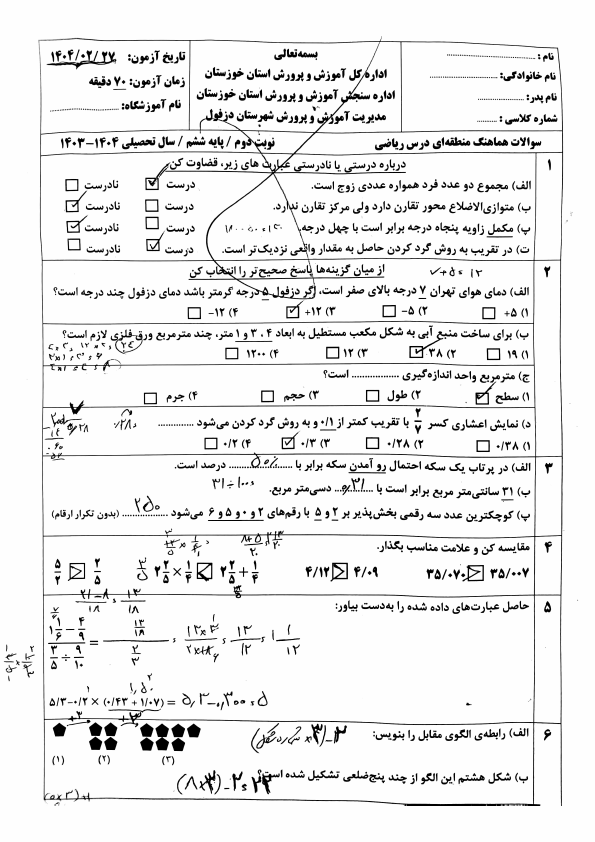 بسمه‌تعالی
نام : ............
نام خانوادگی: ............
نام پدر: ............
شماره کلاسی : ............
اداره کل آموزش و پرورش استان خوزستان
اداره سنجش آموزش و پرورش استان خوزستان
مدیریت آموزش و پرورش شهرستان دزفول
تاریخ آزمون: ۱۴۰۴/۰۲/۲۷
زمان آزمون: ۷۰ دقیقه
نام آموزشگاه:
سوالات هماهنگ منطقه‌ای درس ریاضی نوبت دوم / پایه ششم / سال تحصیلی ۱۴۰۴-۱۴۰۳
۱ درباره درستی یا نادرستی عبارت های زیر، قضاوت کن.
الف) مجموع دو عدد فرد همواره عددی زوج است. درست نادرست
ب) متوازی‌الاضلاع محور تقارن دارد ولی مرکز تقارن ندارد. درست نادرست
پ) مکمل زاویه پنجاه درجه برابر است با چهل درجه. درست نادرست
ت) در تقریب به روش گرد کردن حاصل به مقدار واقعی نزدیک‌تر است. درست نادرست
۲ از میان گزینه‌ها پاسخ صحیح‌تر را انتخاب کن
۷+۵=۱۲
الف) دمای هوای تهران ۷ درجه بالای صفر است، اگر دزفول ۵ درجه گرمتر باشد دمای دزفول چند درجه است؟
۱) ۵+ ۲) ۵- ۳) ۱۲+ ۴) ۱۲-
ب) برای ساخت منبع آبی به شکل مکعب مستطیل به ابعاد ۴ ، ۳ و ۱ متر، چند مترمربع ورق فلزی لازم است؟
۱) ۱۹ ۲) ۳۸ ۳) ۱۲ ۴) ۱۲۰۰
ج) مترمربع واحد اندازه‌گیری .................. است؟
۱) سطح ۲) طول ۳) حجم ۴) جرم
د) نمایش اعشاری کسر ۲/۷ با تقریب کمتر از ۰/۱ و به روش گرد کردن می‌شود ..............
۱) ۰/۳۸ ۲) ۰/۲۸ ۳) ۰/۳ ۴) ۰/۲
۳ الف) در پرتاب یک سکه احتمال رو آمدن سکه برابر با ۵۰٪ درصد است.
ب) ۳۱ سانتی‌متر مربع برابر است با ۰/۳۱ دسی‌متر مربع. ۳۱÷۱۰۰=
پ) کوچکترین عدد سه رقمی بخش‌پذیر بر ۲ و ۵ با رقم‌های ۲ و ۰ و ۵ و ۶ می‌شود ۲۵۰ (بدون تکرار ارقام)
۴ مقایسه کن و علامت مناسب بگذار.
۳۵/۰۰۷ > ۳۵/۰۷۰ ۴/۰۹ > ۴/۱۲ ۲ ۲/۵ + ۱/۴ < ۲ ۲/۵ × ۱/۴ ۲/۵ > ۵/۲
۵ حاصل عبارت‌های داده شده را به‌دست بیاور:
۲۱-۸/۱۸ = ۱۳/۱۸
(۱ ۱/۶ - ۴/۹) / (۳/۵ ÷ ۹/۱۰) = (۱۳/۱۸) / (۲/۳) = ۱۳×۳/۲×۱۸ = ۱۳/۱۲ = ۱ ۱/۱۲
۵/۳-۰/۲ × (۰/۴۳ + ۱/۰۷) = ۵/۳-۰/۳۰۰=۵
۶ الف) رابطه‌ی الگوی مقابل را بنویس: (۳×شماره شکل)-۲
+۳ +۳
(۱) (۲) (۳)
ب) شکل هشتم این الگو از چند پنج‌ضلعی تشکیل شده است؟ (۸×۳)-۲=۲۲